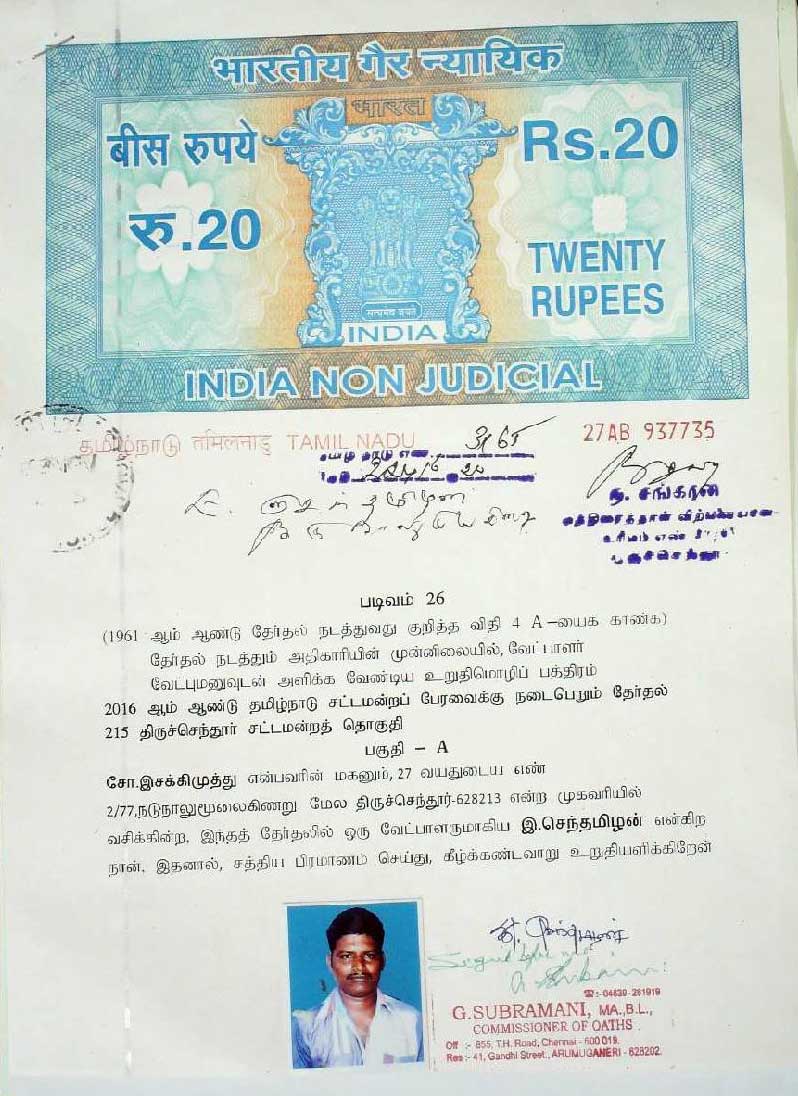 भारतीय गैर न्यायिक
भारत
बीस रुपये
Rs.20
रु.20
TWENTY
RUPEES
सत्यमेव जयते
INDIA
INDIA NON JUDICIAL
தமிழ்நாடு तमिलनाडु TAMIL NADU
3165
27AB 937735
படிவம் 26
(1961 ஆம் ஆண்டு தேர்தல் நடத்துவது குறித்த விதி 4 A-யைக காண்க)
தேர்தல் நடத்தும் அதிகாரியின் முன்னிலையில், வேட்பாளர்
வேட்புமனுவுடன் அளிக்க வேண்டிய உறுதிமொழிப் பத்திரம்
2016 ஆம் ஆண்டு தமிழ்நாடு சட்டமன்றப் பேரவைக்கு நடைபெறும் தேர்தல்
215 திருச்செந்தூர் சட்டமன்றத் தொகுதி
பகுதி – A
சோ.இசக்கிமுத்து என்பவரின் மகனும், 27 வயதுடைய எண்
2/77,நடுநாலுமூலைகிணறு மேல திருச்செந்தூர்-628213 என்ற முகவரியில்
வசிக்கின்ற, இந்தத் தேர்தலில் ஒரு வேட்பாளருமாகிய இ.செந்தமிழன் என்கிற
நான், இதனால், சத்திய பிரமாணம் செய்து, கீழ்க்கண்டவாறு உறுதியளிக்கிறேன்
☎:-04639-281919
G.SUBRAMANI, MA.,B.L.,
COMMISSIONER OF OATHS
Off :- 855, T.H. Road, Chennai - 600 019.
Res :- 41, Gandhi Street., ARUMUGANERI - 628202.